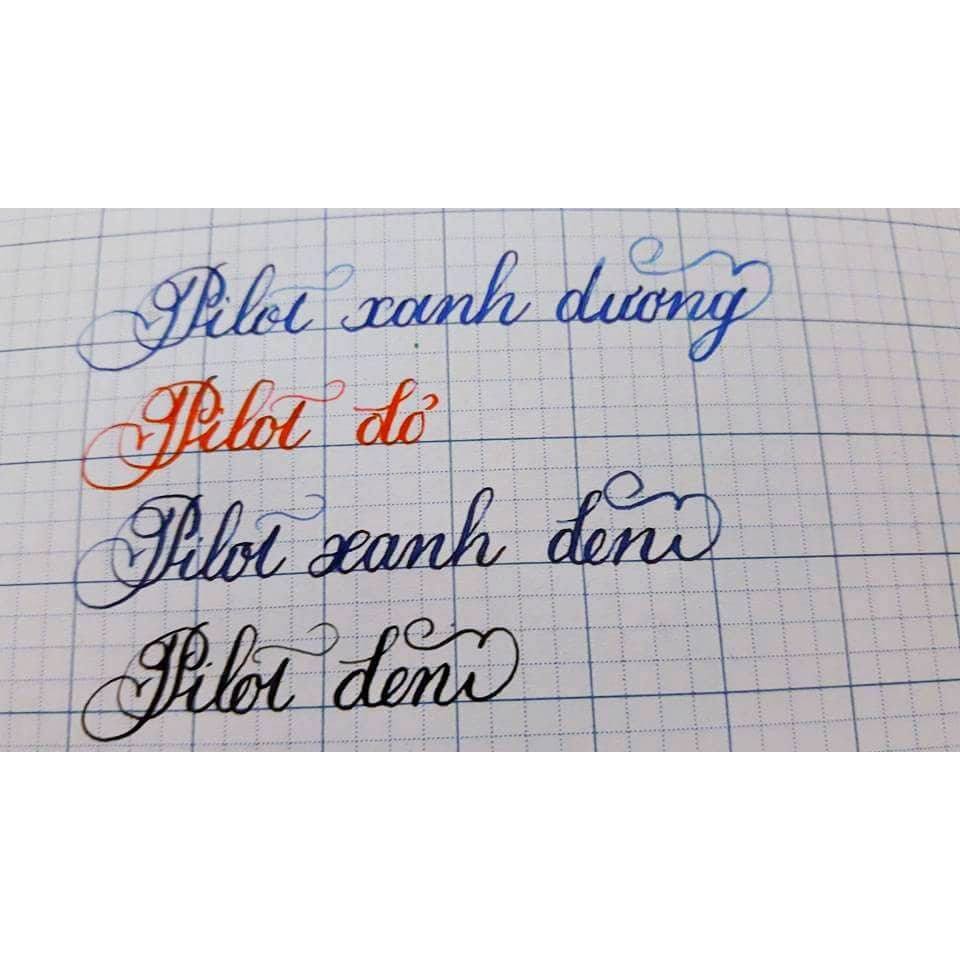 Pilot xanh dương
Pilot đỏ
Pilot xanh đen
Pilot đen